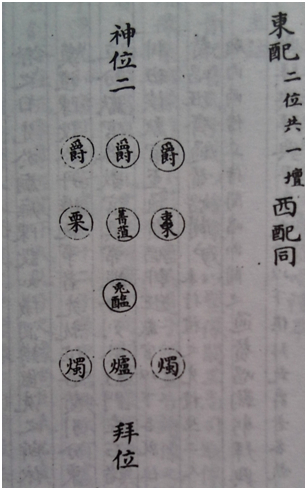 東配二位共一壇西配同
神位二
爵 爵 爵
棗 菁菹 栗
兔醢
燭 爐 燭
拜位